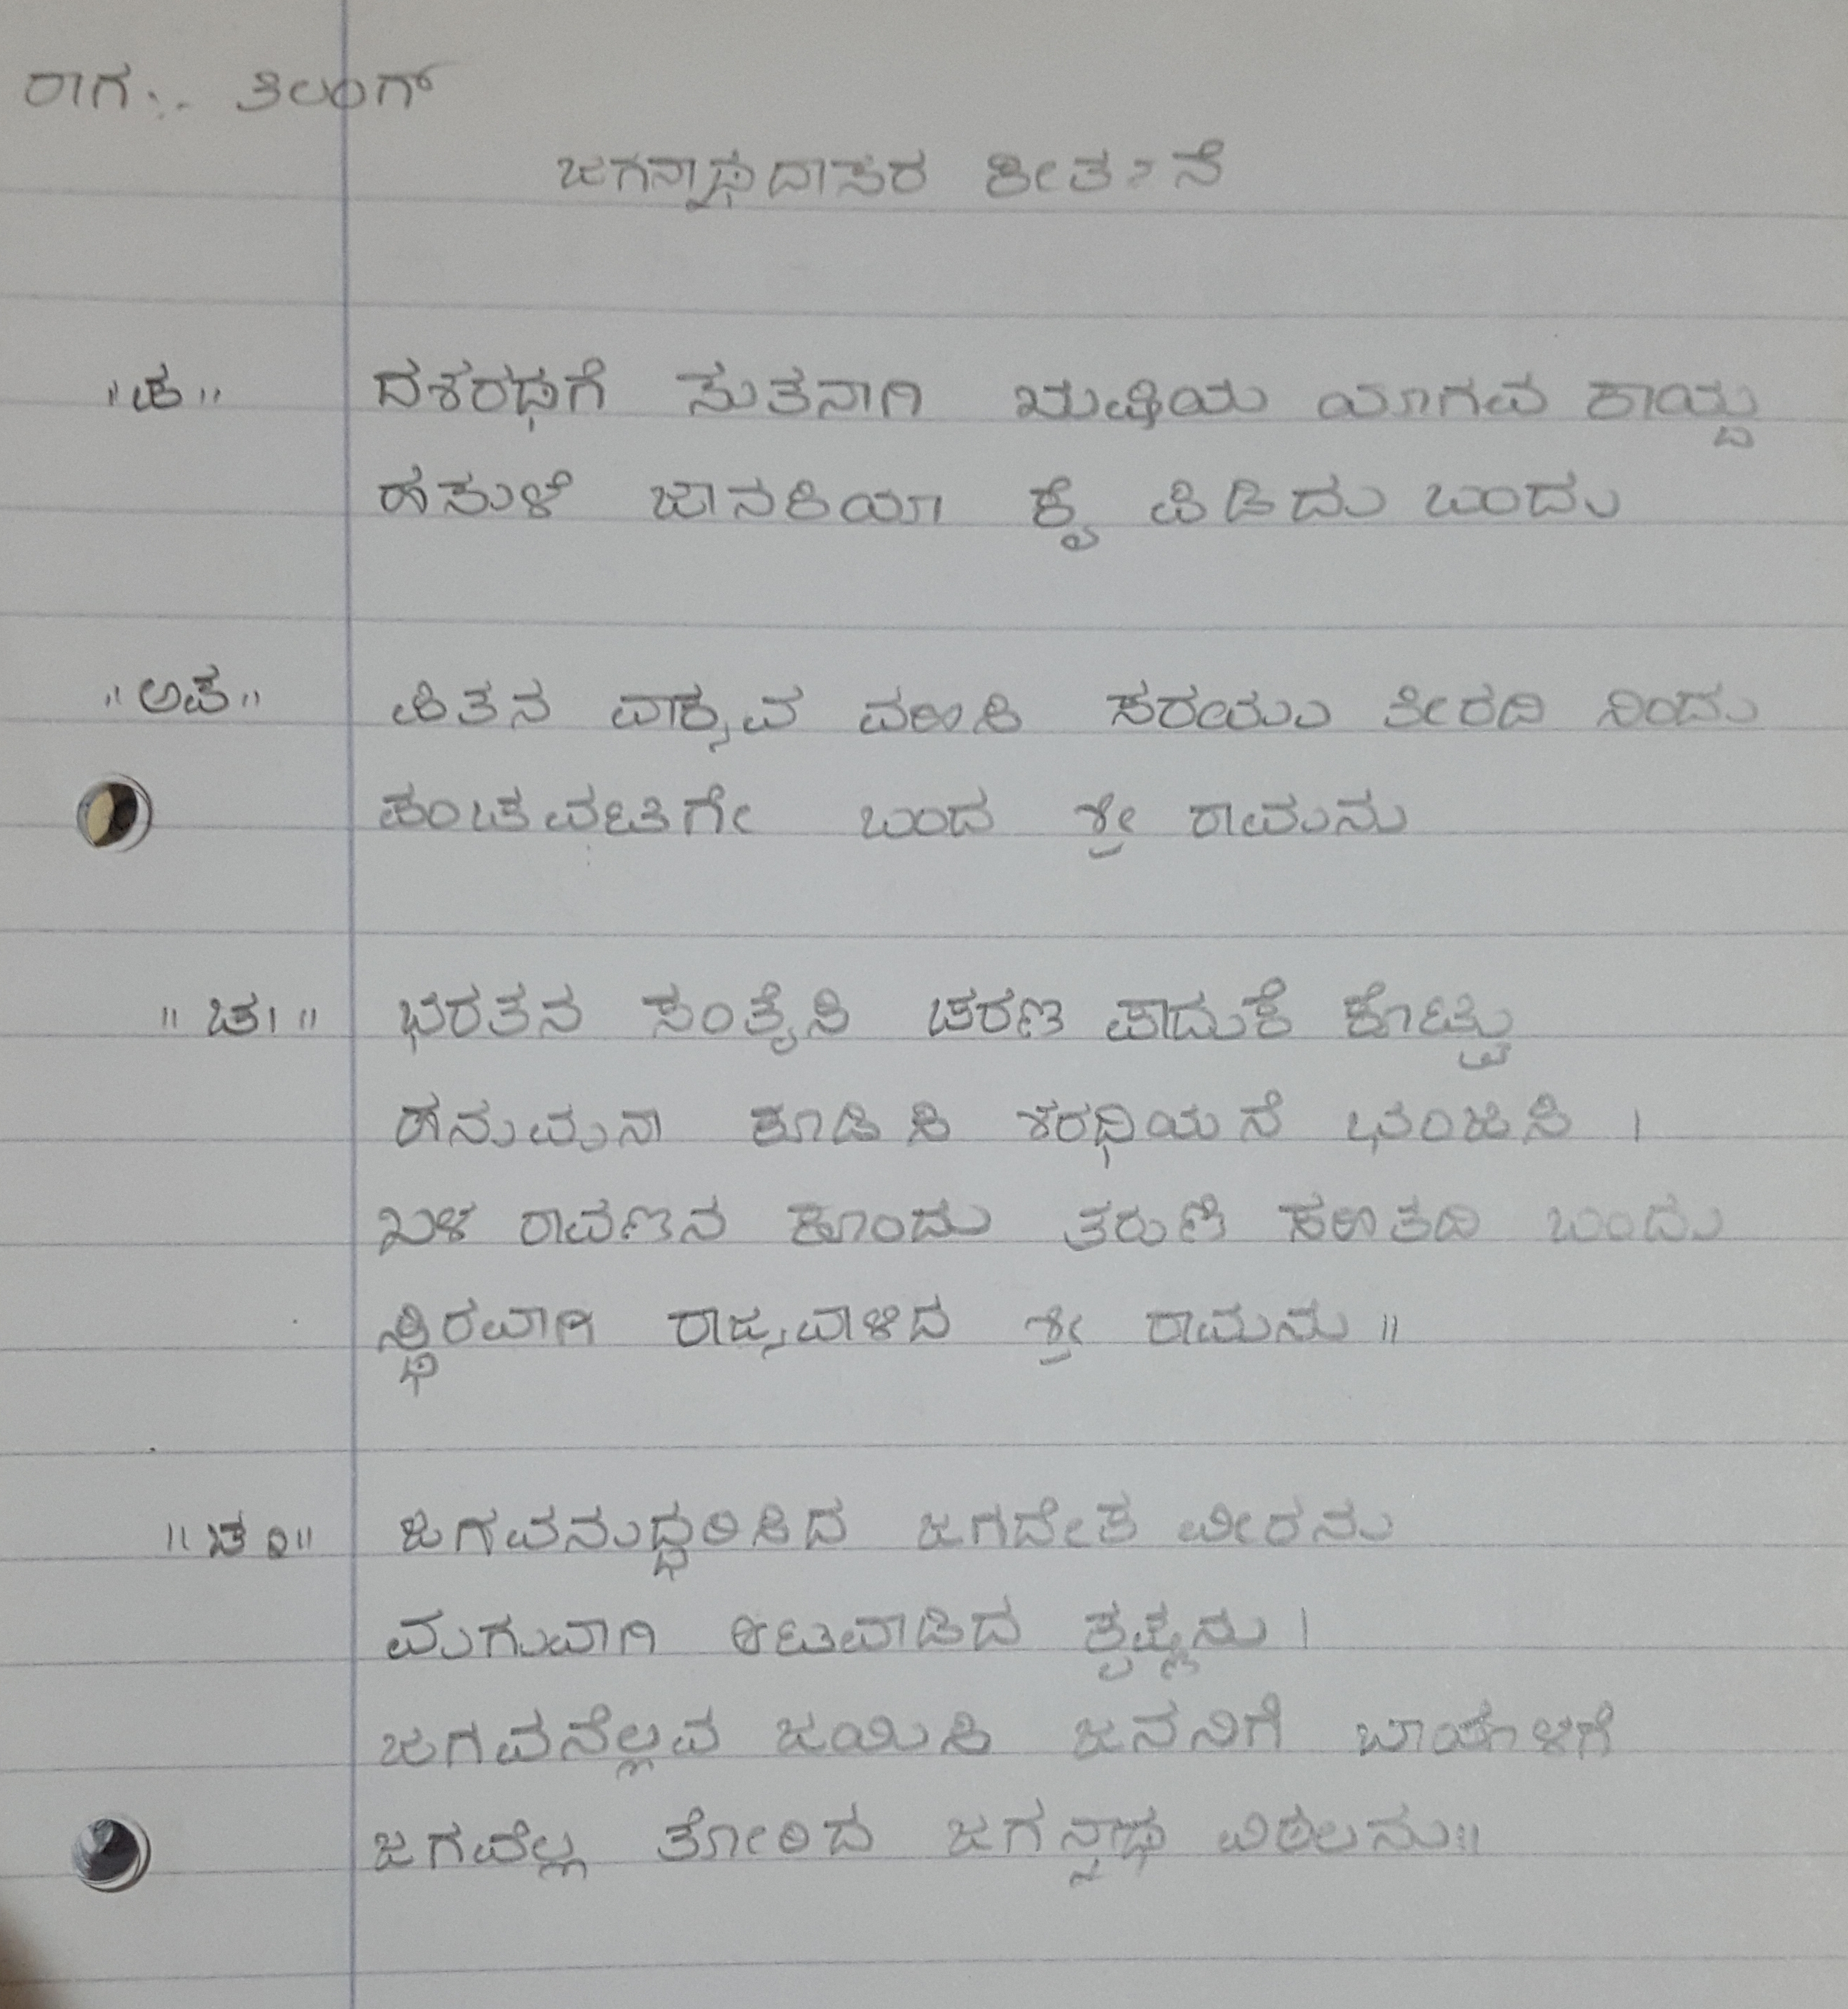 ರಾಗ:- ತಿಲಂಗ್
ಜಗನ್ನಾಥದಾಸರ ಕೀರ್ತನೆ
॥ಪ॥ ದಶರಥಗೆ ಸುತನಾಗಿ ಋಷಿಯ ಯಾಗವ ಕಾಯ್ದ
ಹಸುಳೆ ಜಾನಕಿಯಾ ಕೈ ಪಿಡಿದು ಬಂದು
॥ಅಪ॥ ಪಿತನ ವಾಕ್ಯವ ವಹಿಸಿ ಸರಯು ತೀರದಿ ನಿಂದು
ಪಂಚವಟಿಗೇ ಬಂದ ಶ್ರೀ ರಾಮನು
॥ಚ೧॥ ಭರತನ ಸಂತೈಸಿ ಚರಣ ಪಾದುಕೆ ಕೊಟ್ಟು
ಹನುಮನಾ ಕೂಡಿಸಿ ಶರಧಿಯನೆ ಭಂಜಿಸಿ ।
ಖಳ ರಾವಣನ ಕೊಂದು ತರುಣಿ ಸಹಿತದಿ ಬಂದು
ಸ್ಥಿರವಾಗಿ ರಾಜ್ಯವಾಳಿದ ಶ್ರೀ ರಾಮನು ॥
॥ಚ೨॥ ಜಗವನುದ್ಧರಿಸಿದ ಜಗದೇಕ ವೀರನು
ಮಗುವಾಗಿ ಆಟವಾಡಿದ ಕೃಷ್ಣನು ।
ಜಗವನೆಲ್ಲವ ಜಯಿಸಿ ಜನನಿಗೆ ಬಾಯೊಳಗೆ
ಜಗವೆಲ್ಲ ತೋರಿದ ಜಗನ್ನಾಥ ವಿಠಲನು॥